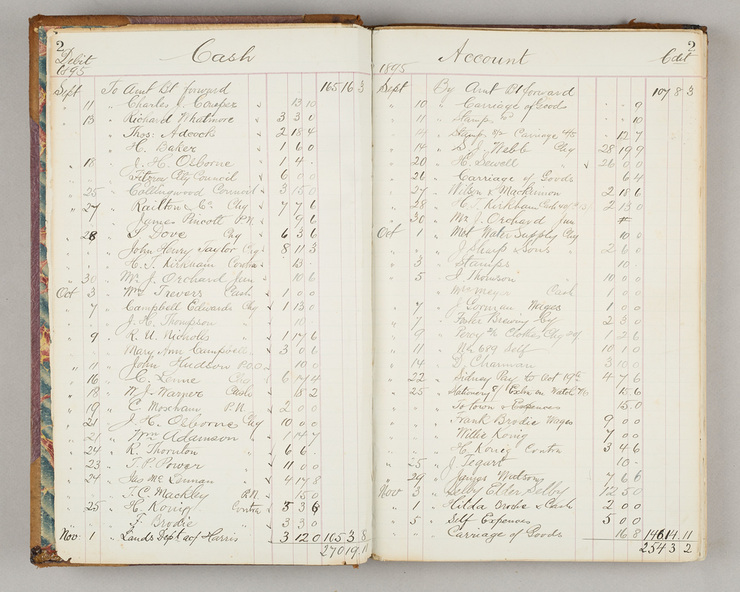 2
Debit
1895
Cash
Sept To Amt Bt forward 165 16 3
" 11 " Charles Cowper 13 10
" 13 " Richard Whatmore 3 3 0
" Thos: Adcock 2 18 4
" H. Baker 1 6 0
" 18 " H. Osborne 1 4 -
" City Council 6 0 0
" 25 " Collingwood Council 3 15 0
" 27 " Railton Chq 7 7 6
" James P.N. 9 6
" 28 " J Dove Chq 6 3 6
" John Henry Taylor Chq 8 11 3
" H. J. Kirkham Contra 13
" 30 " Mr J. Orchard Jun 10 6
Oct 3 " Wm Trevers Cash 1 0 0
" 7 " Campbell Edwards Chq 1 13 0
" J. H. Thompson 10
" 9 " R. U. Nicholls 1 17 6
" Mary Ann 3 0 6
" 11 " John Hudson P.O.O. 10 0
" 16 " C. Lenne 6 17 4
" 18 " W. J. Warner Cash 5 2
" 19 " C Moscham P.N. 2 0 0
" 21 " J. H. Osborne Chq 10 0 0
" 21 " Wm Adamson 1 14 7
" 24 " R. Thornton 6 6
" 23 " T. P. Power 11 0 0
" 24 " Jas Mc Lennan 4 17 8
" T. C. Mackley P.N. 15 0
" 25 " H. König Contra 3 6
" F. Brodie 3 3 0
Nov 1 " Lands Dept a/c Harris 3 12 0 165 3 8
270 19 11
2
1895
Account
Cdit
Sept By Amt Bt forward 107 8 3
" 10 " Carriage of Goods 9
" 11 " Stamps 10
" 14 " Carriage 12 7
" 14 " S. J. Webb Chq 28 19 9
" 20 " H. Sewell 26 0 0
" 26 " Carriage of Goods 6 4
" 27 " Wilson & Mackinnon 2 18 6
" 28 " H. J. Kirkham 2 13 0
" 30 " Mr J. Orchard Jun #
Oct 1 " Met Water Supply Chq 10 0
" J Sharp & Sons 2 6 0
" 3 " Stamps 10
" 5 " J. Thomson 10 0
" Cash 1 0 0
" 7 " J Gorman Wages 1 0 0
" 7 " Foster Brewing Cy 2 3 0
" 9 " Clothes 1 2 6
" 11 " Self 10 1 0
" 14 " D. Chapman 3 10 0
" 22 " Sidney Pay to Oct 19th 4 7 6
" 25 " Stationery 15 6
" To town & Expenses 15 0
" Frank Brodie Wages 9 0 0
" Willie König 7 0 0
" H. König Contra 3 4 6
" 25 " J. Tegart 10 -
" 29 " James Watson 7 6 6
Nov 3 " Selby 12 5 0
" 1 " Hilda Cash 2 0 0
" 5 " Self Expenses 5 0 0
" Carriage of Goods 16 8 146 14 11
254 3 2